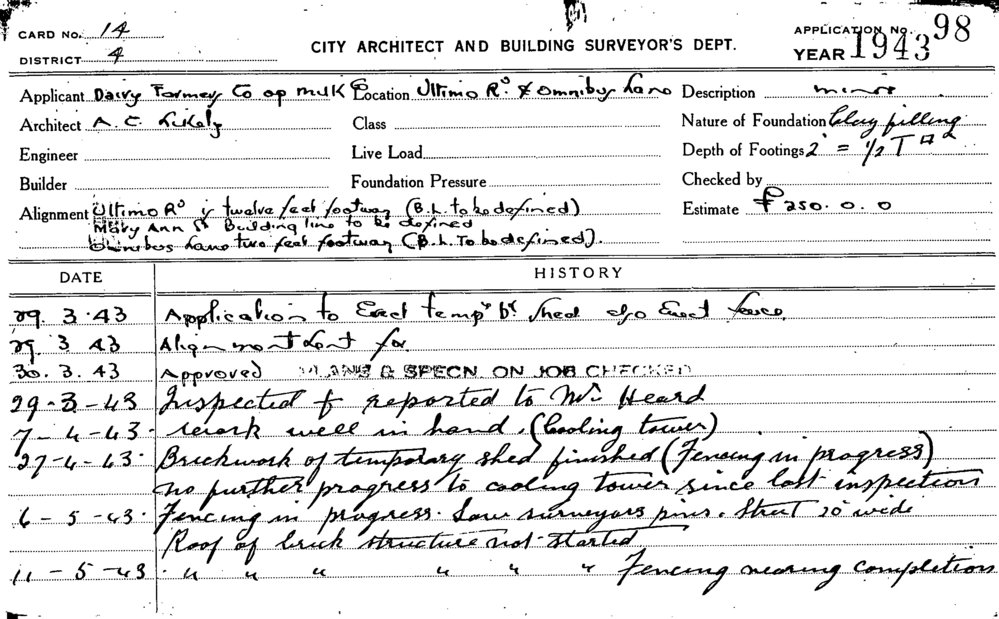 CARD No. 14
DISTRICT 4
CITY ARCHITECT AND BUILDING SURVEYOR'S DEPT.
APPLICATION No. 98
YEAR 1943
Applicant Dairy Farmers Co op milk Co Location Ultimo Rd. & Omnibus Lane Description minor
Architect A. C. Class Nature of Foundation Clay filling
Engineer Live Load Depth of Footings 2' = 1/2 T
Builder Foundation Pressure Checked by
Alignment Ultimo Rd is twelve feet footway (B.L. to be defined) Estimate £250.0.0
Mary Ann St Building line to be defined
Omnibus Lane two feet footway (B.L. To be defined).
DATE HISTORY
29. 3. 43 Application to Erect tempy bk shed also Erect fence.
29. 3. 43 Alignment sent for.
30. 3. 43 Approved PLANS & SPECN. ON JOB CHECKED
29-3-43 Inspected & reported to Mr Heard
7-4-43. work well in hand. (Cooling tower)
27-4-43. Brickwork of temporary shed finished (Fencing in progress)
no further progress to cooling tower since last inspection
6-5-43. Fencing in progress. Saw surveyors pins. Street 20' wide
Roof of brick structure not started
11-5-43. " " " " " " Fencing nearing completion